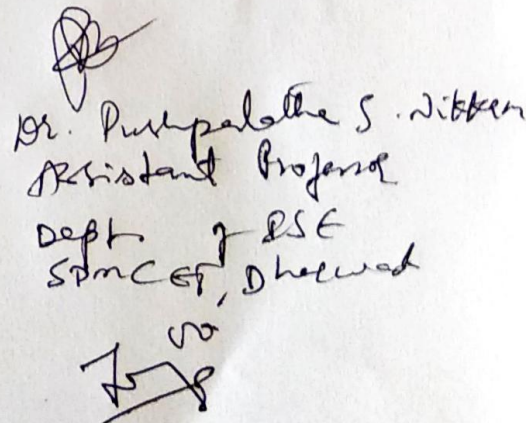 Dr. Pushpalatha S. Nikkam
Assistant Professor
Dept. of ISE
SDMCET, Dharwad